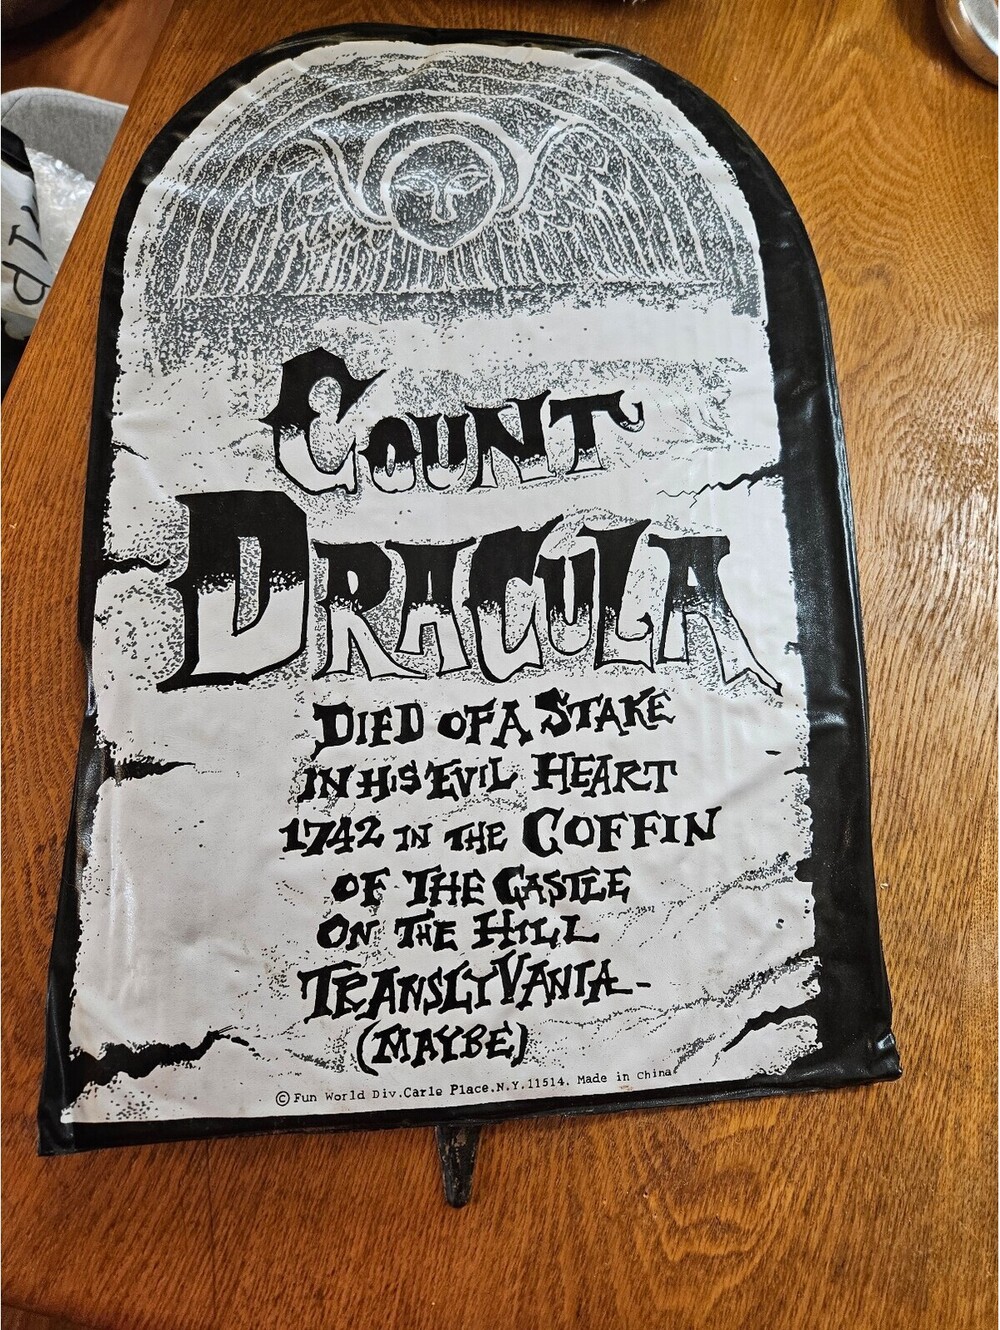 COUNT
DRACULA
DIED OF A STAKE
IN HIS EVIL HEART
1742 IN THE COFFIN
OF THE CASTLE
ON THE HILL
TRANSLYVANIA-
(MAYBE)
© Fun World Div.Carle Place.N.Y.11514. Made in China